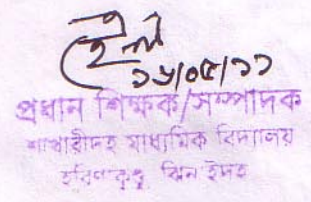 ১৬/০৫/১১
প্রধান শিক্ষক/সম্পাদক
শাখারীদহ মাধ্যমিক বিদ্যালয়
হরিণাকুণ্ডু ঝিনাইদহ